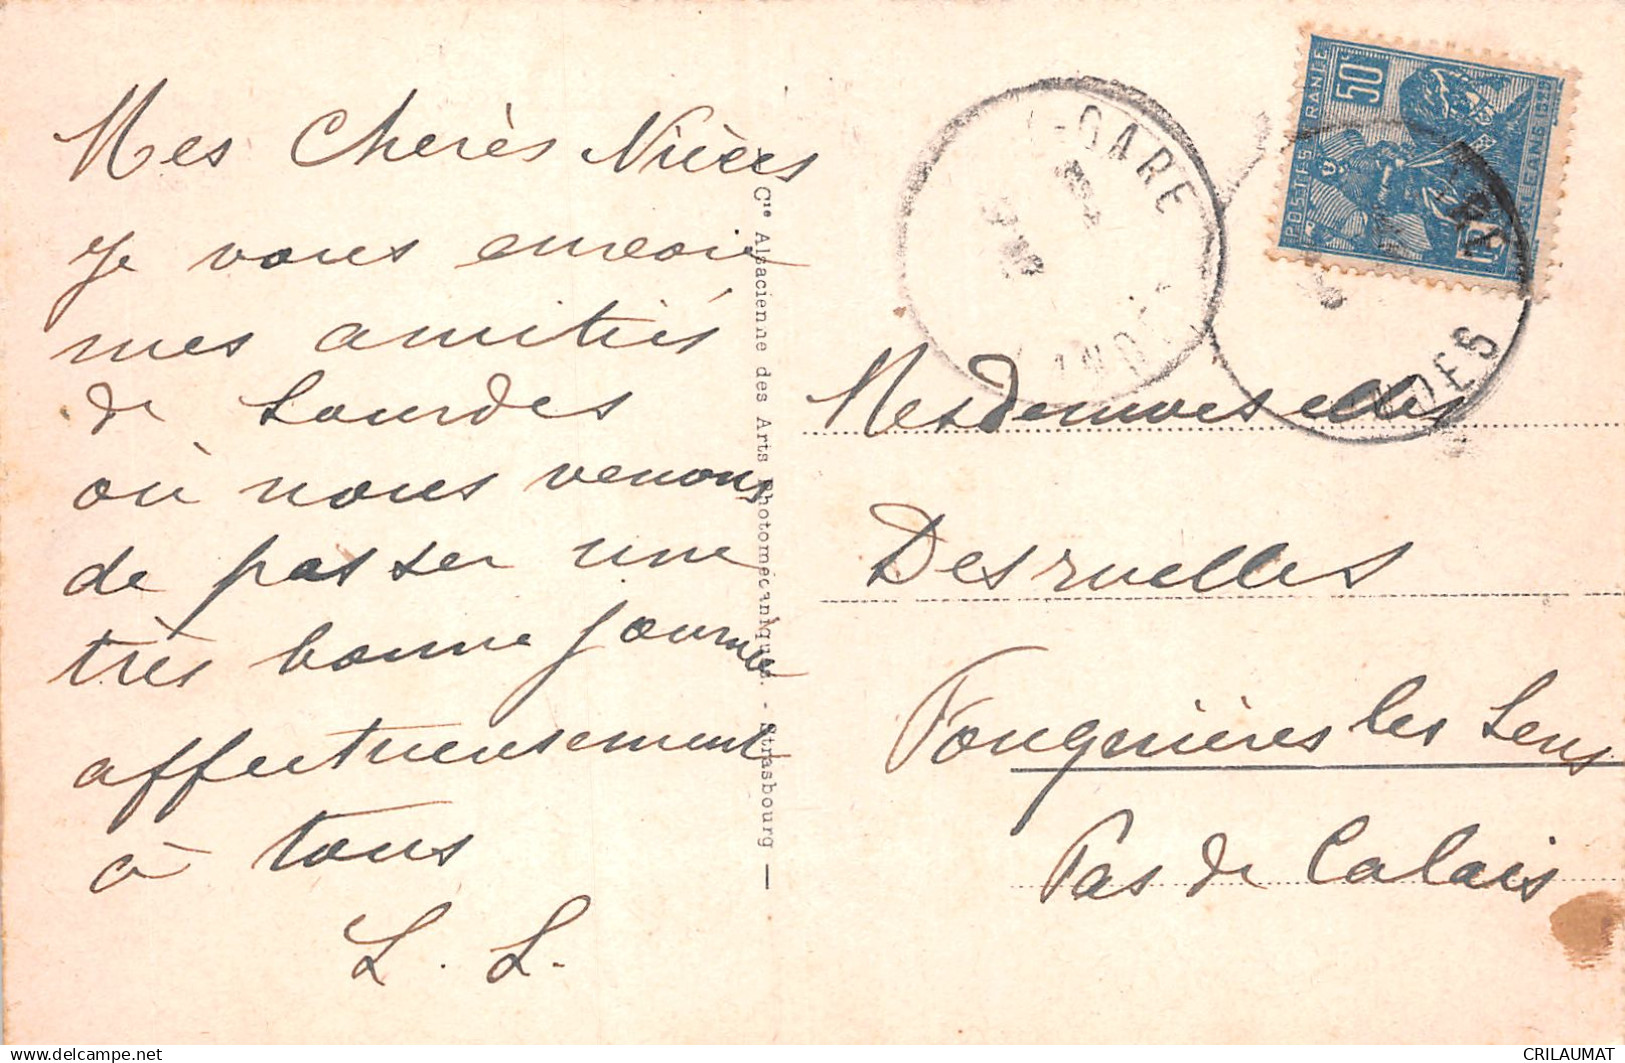 Mes Cherès Nièces
Je vous envoie
mes amitiés
de Lourdes
où nous venons
de passer une
très bonne journée
affectueusement
à tous
L. L.
Cie Alsacienne des Arts Photomécaniques. - Strasbourg —
-GARE
POSTES FRANCE
50c
ORLEANS 1929
RF
DES
Mesdemoiselles
Desruelles
Fouquières les Lens
Pas de Calais
CRILAUMAT